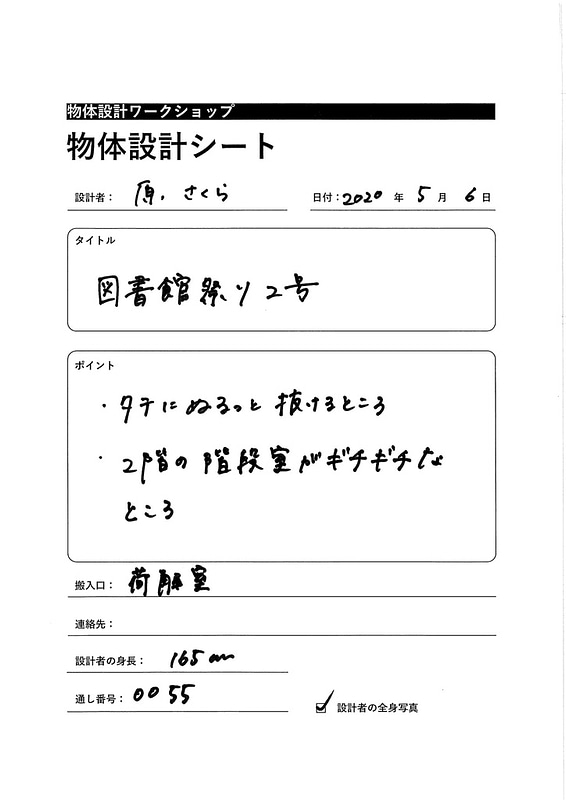 物体設計ワークショップ
物体設計シート
設計者： 原，さくら
日付：2020 年 5 月 6 日
タイトル
図書館祭り2号
ポイント
・タテにぬるっと抜けるところ
・2階の階段室がギチギチな
ところ
搬入口： 荷解室
連絡先：
設計者の身長： 165cm
通し番号： 0055
設計者の全身写真